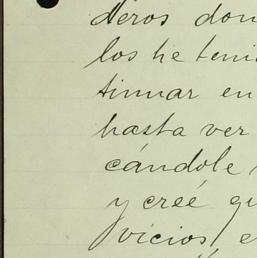 deros don
los he teni
tinuar en
hasta ver
cándole
y creé qu
vicios, e